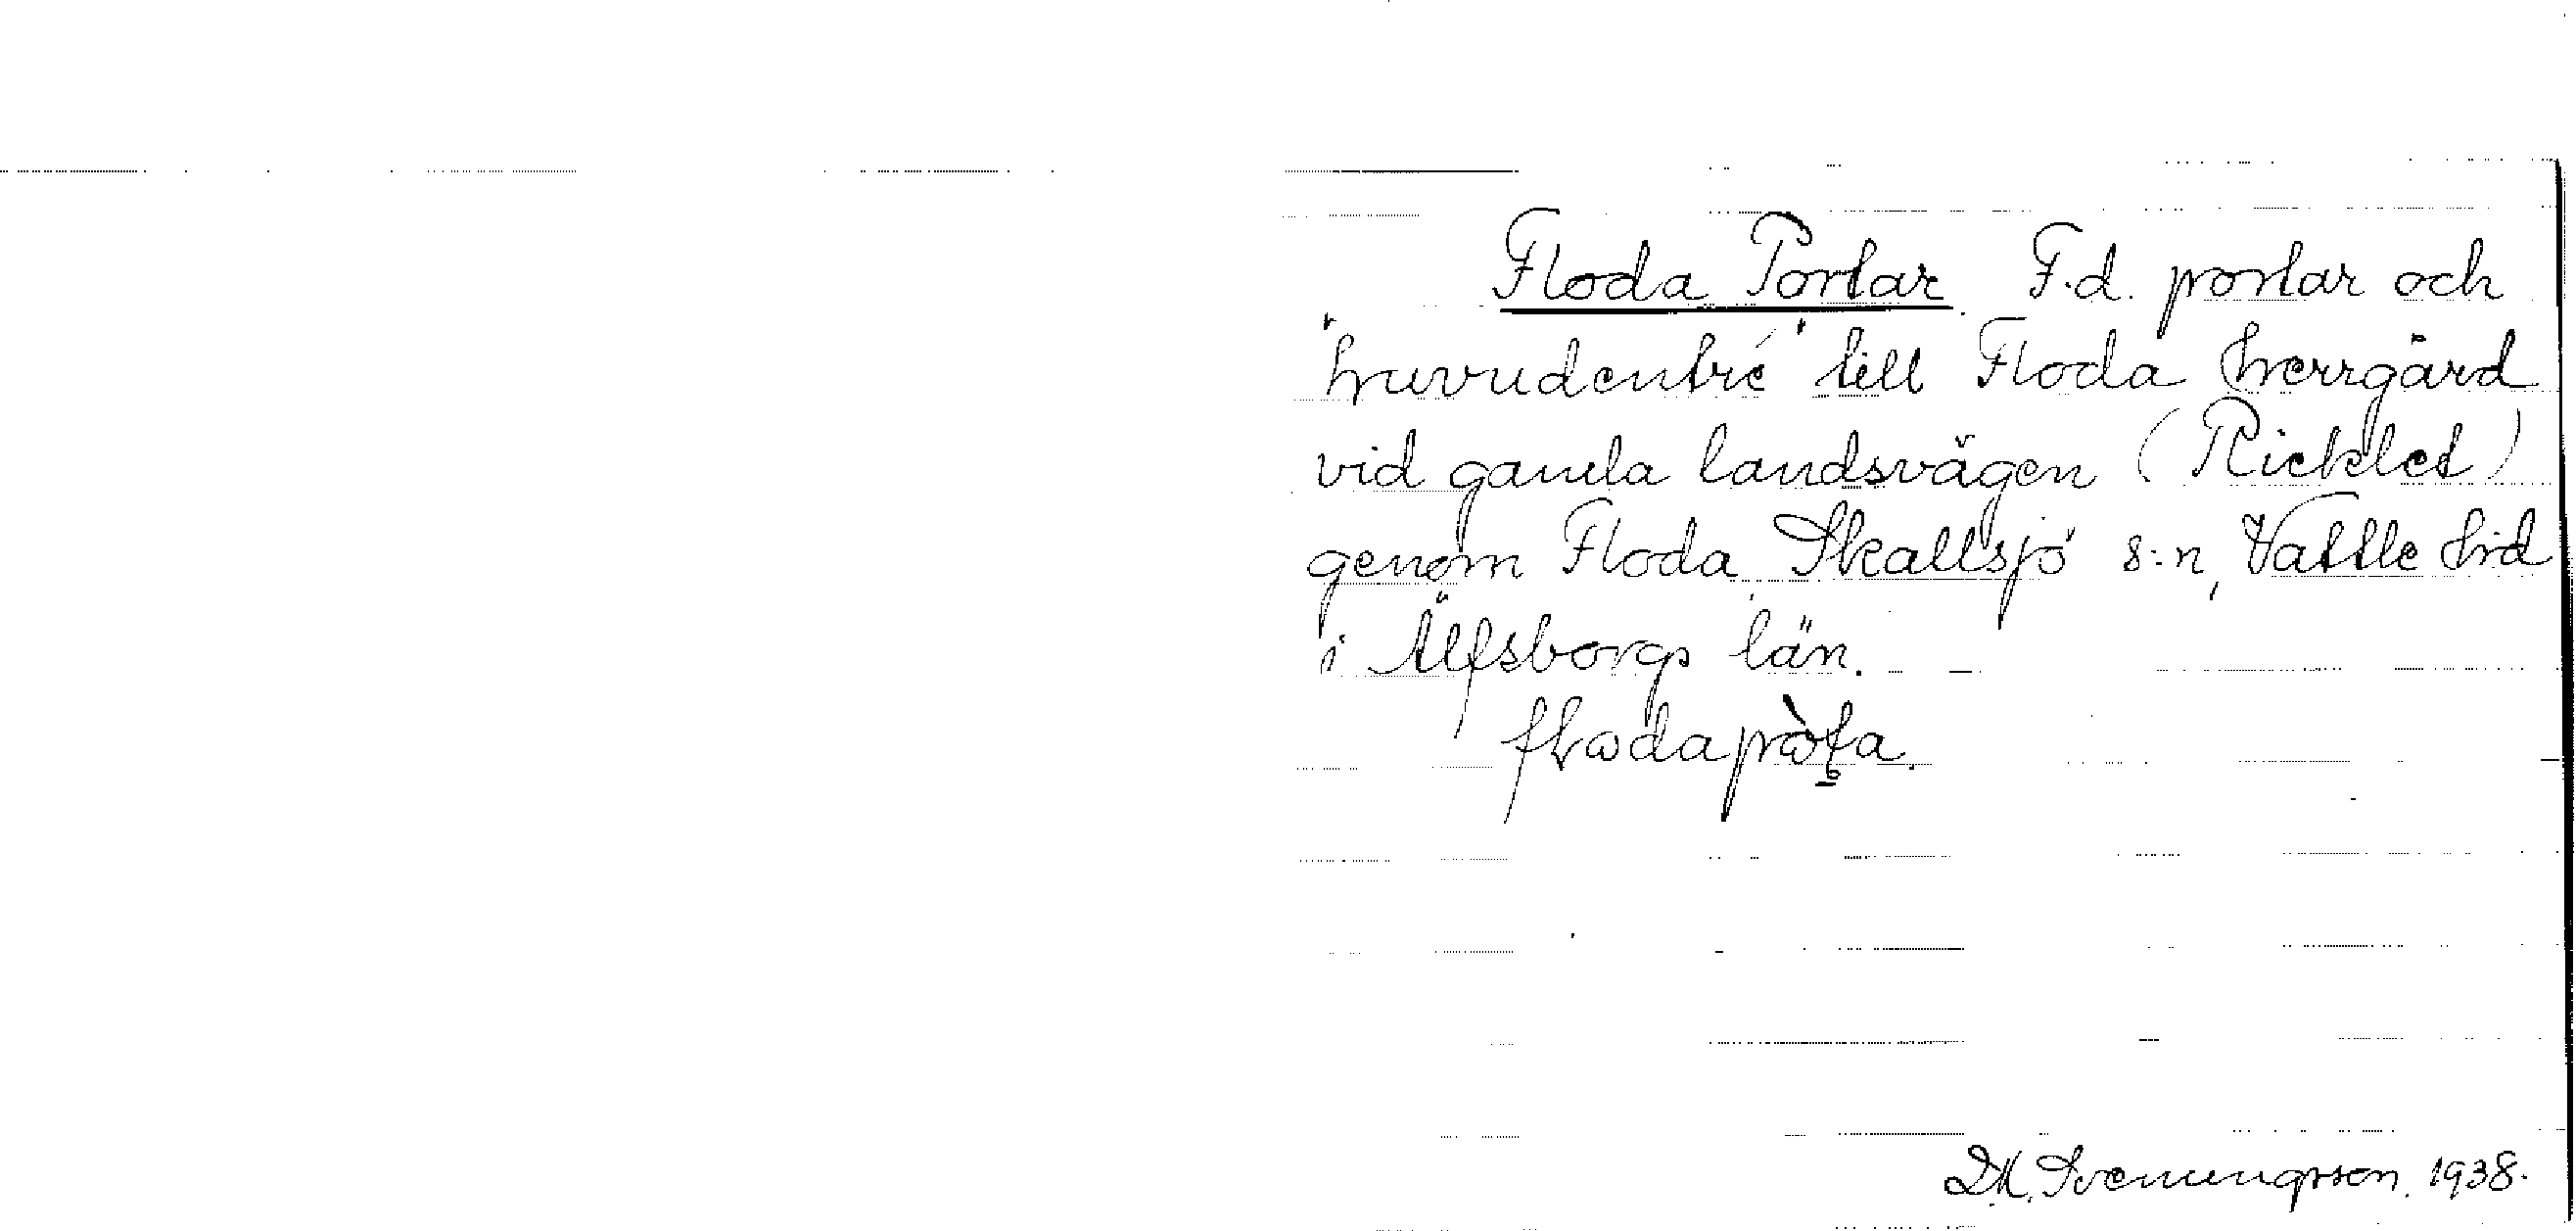 Floda Portar. F.d. portar och
"huvudentré" till Floda herrgård
vid gamla landsvägen (Ricklet)
genom Floda, Skallsjö s:n, Vättle hd
i Älfsborgs län.
1938.